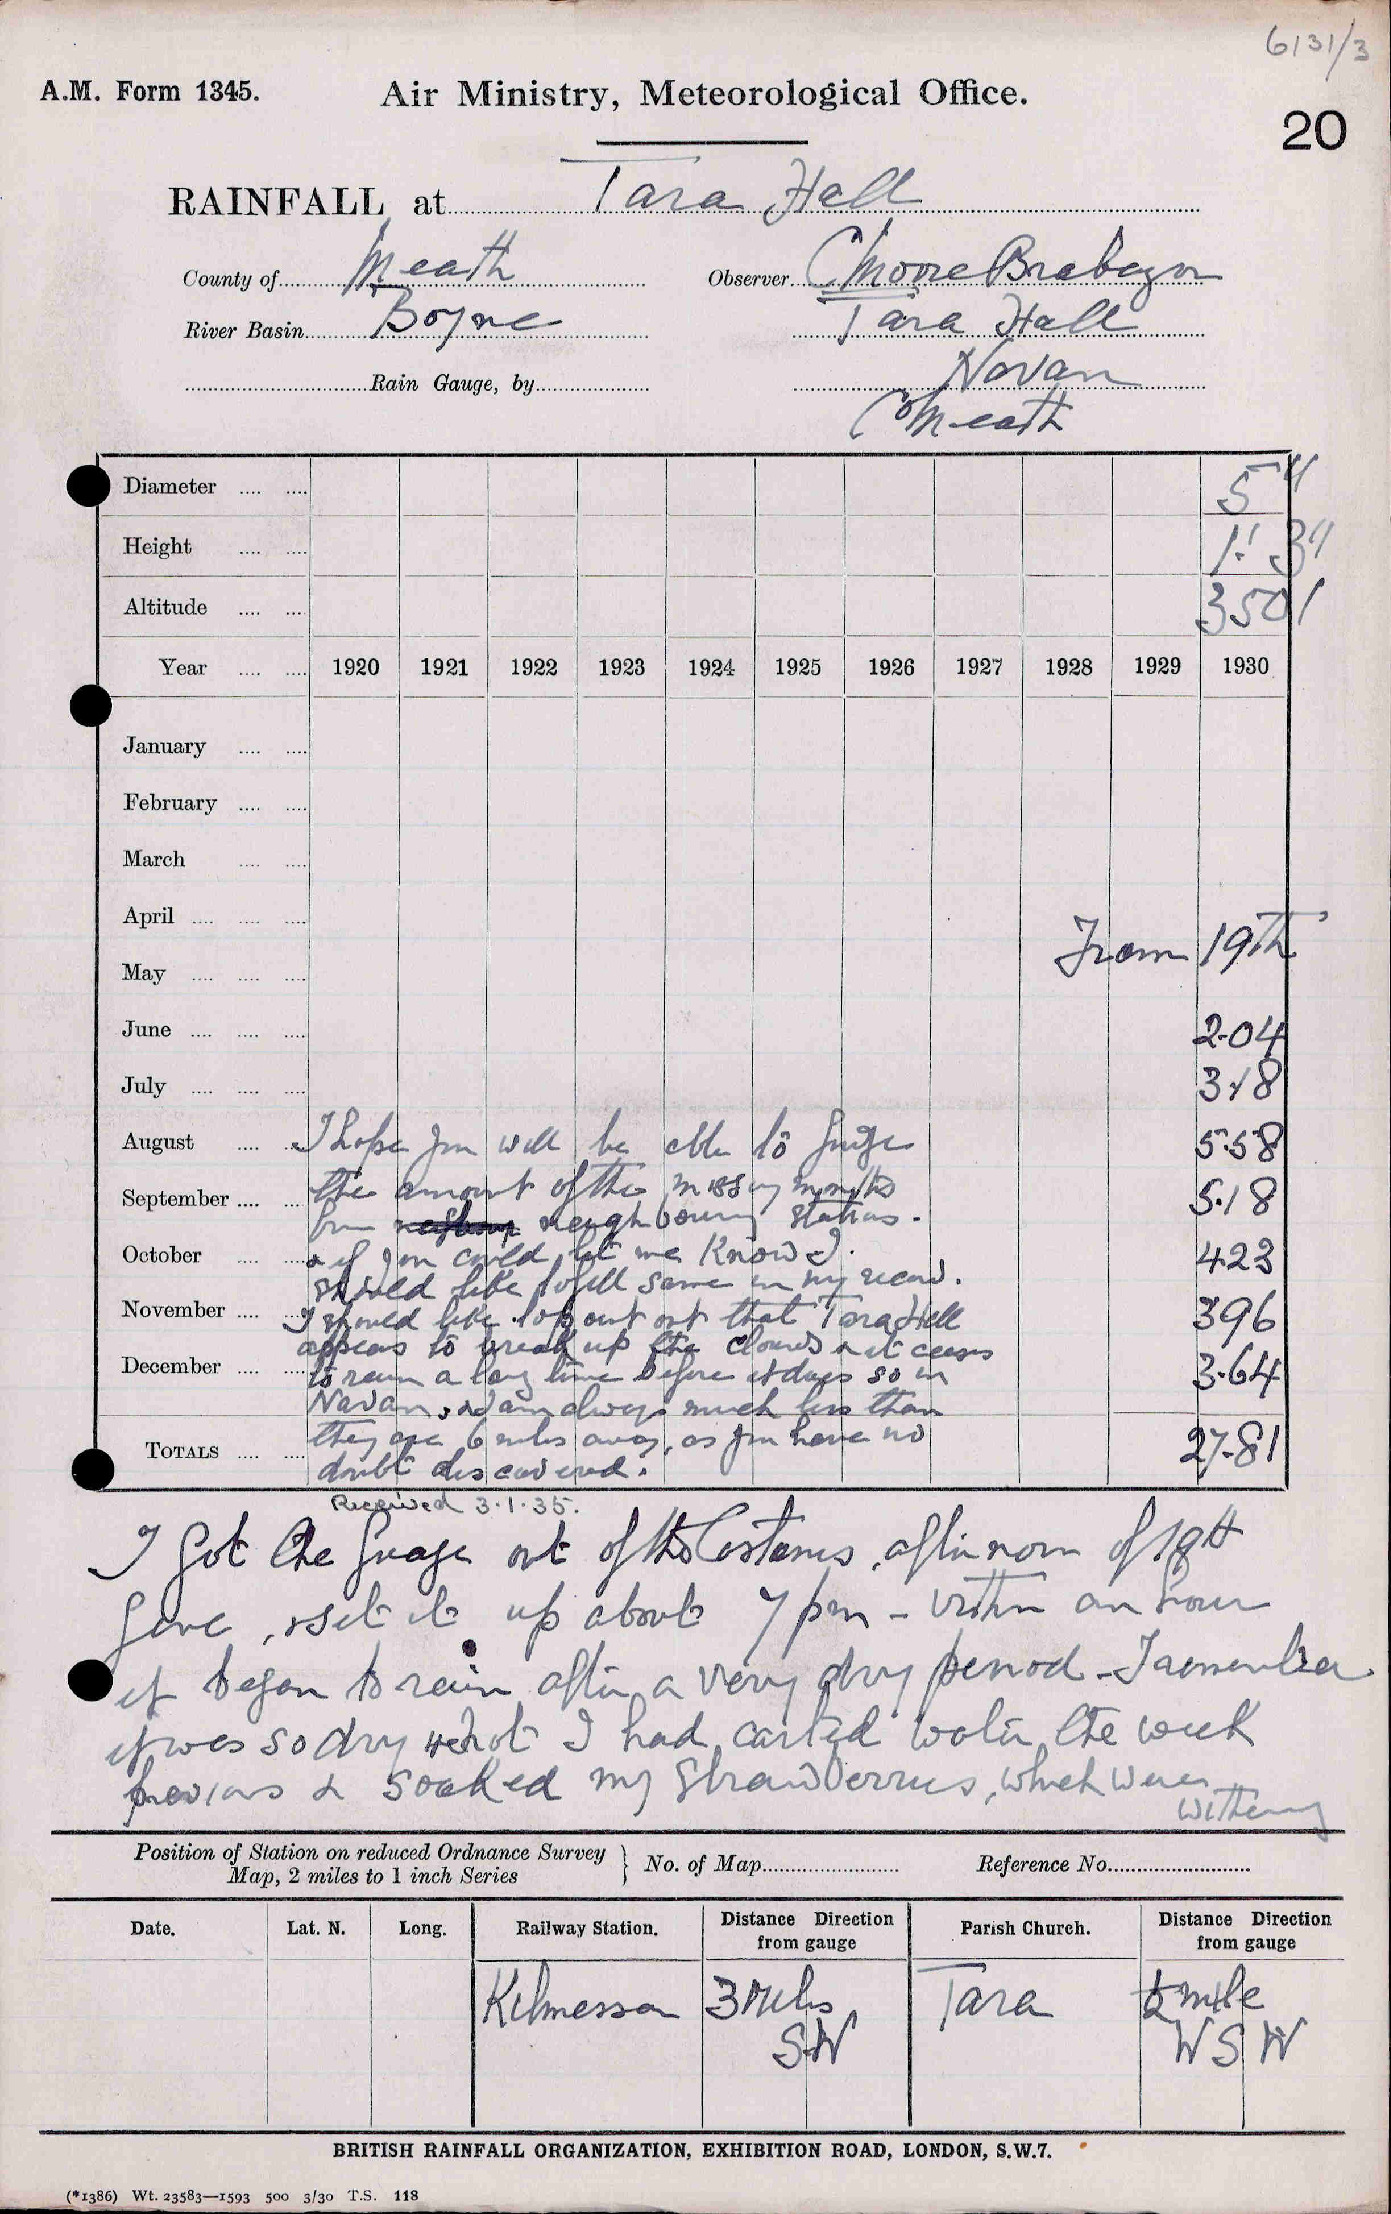 6131/3
A.M. Form 1345.
Air Ministry, Meteorological Office.
20
RAINFALL at Tara Hall
County of Meath
Observer C Moore Brabazon
River Basin Boyne
Tara Hall
Rain Gauge, by
Navan
Co Meath
Diameter 5"
Height 1' 3"
Altitude 350'
Year 1920 1921 1922 1923 1924 1925 1926 1927 1928 1929 1930
January
February
March
April
From 19th
May
June 2.04
July 3.18
August 5.58
September 5.18
October 4.23
November 3.96
December 3.64
TOTALS 27.81
I hope you will be able to guage
the amount of the missing months
from neighbouring stations.
& if you could let me know I
should like to fill same in my record.
I should like to point out that Tara Hill
appears to break up the clouds & it ceases
to rain a long time before it does so in
Navan, & I am always much less than
they are 6 miles away, as you have no
doubt discovered.
Received 3.1.35.
I got the guage out of the Customs, afternoon of 19th
June, & set it up about 7 pm - within an hour
it began to rain after a very dry period - I remember
it was so dry & hot I had carted water the week
previous & soaked my strawberries, which were
withering
Position of Station on reduced Ordnance Survey
Map, 2 miles to 1 inch Series
No. of Map
Reference No.
Date. Lat. N. Long. Railway Station. Distance Direction from gauge Parish Church. Distance Direction from gauge
Kilmessan 3 Miles Tara ½ mile
SW WSW
BRITISH RAINFALL ORGANIZATION, EXHIBITION ROAD, LONDON, S.W.7.
(*1386) Wt. 23583—1593 500 3/30 T.S. 118